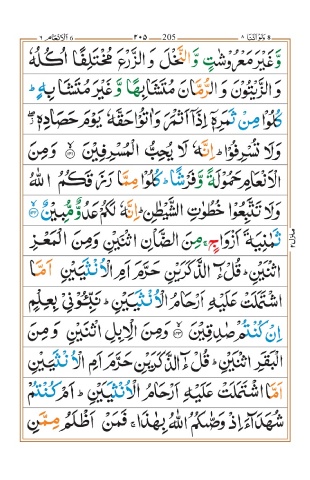 الانعام ٦ ٢٠٥ 205 ولواننا ٨
وَّغَيْرَ مَعْرُوْشٰتٍ وَّالنَّخْلَ وَالزَّرْعَ مُخْتَلِفًا اُكُلُهٗ
وَالزَّيْتُوْنَ وَالرُّمَّانَ مُتَشَابِهًا وَّغَيْرَ مُتَشَابِهٍ ؕ
كُلُوْا مِنْ ثَمَرِهٖۤ اِذَاۤ اَثْمَرَ وَاٰتُوْا حَقَّهٗ يَوْمَ حَصَادِهٖ ۖ
وَلَا تُسْرِفُوْا ؕ اِنَّهٗ لَا يُحِبُّ الْمُسْرِفِيْنَ ۙ وَمِنَ
الْاَنْعَامِ حَمُوْلَةً وَّفَرْشًا ؕ كُلُوْا مِمَّا رَزَقَكُمُ اللّٰهُ
وَلَا تَتَّبِعُوْا خُطُوٰتِ الشَّيْطٰنِ ؕ اِنَّهٗ لَكُمْ عَدُوٌّ مُّبِيْنٌ ۙ
ثَمٰنِيَةَ اَزْوَاجٍ ۚ مِنَ الضَّاْنِ اثْنَيْنِ وَمِنَ الْمَعْزِ
اثْنَيْنِ ؕ قُلْ ءٰۤالذَّكَرَيْنِ حَرَّمَ اَمِ الْاُنْثَيَيْنِ اَمَّا
اشْتَمَلَتْ عَلَيْهِ اَرْحَامُ الْاُنْثَيَيْنِ ؕ نَبِّـُٔوْنِيْ بِعِلْمٍ
اِنْ كُنْتُمْ صٰدِقِيْنَ ۙ وَمِنَ الْاِبِلِ اثْنَيْنِ وَمِنَ
الْبَقَرِ اثْنَيْنِ ؕ قُلْ ءٰۤالذَّكَرَيْنِ حَرَّمَ اَمِ الْاُنْثَيَيْنِ
اَمَّا اشْتَمَلَتْ عَلَيْهِ اَرْحَامُ الْاُنْثَيَيْنِ ؕ اَمْ كُنْتُمْ
شُهَدَآءَ اِذْ وَصّٰكُمُ اللّٰهُ بِهٰذَا ۚ فَمَنْ اَظْلَمُ مِمَّنِ